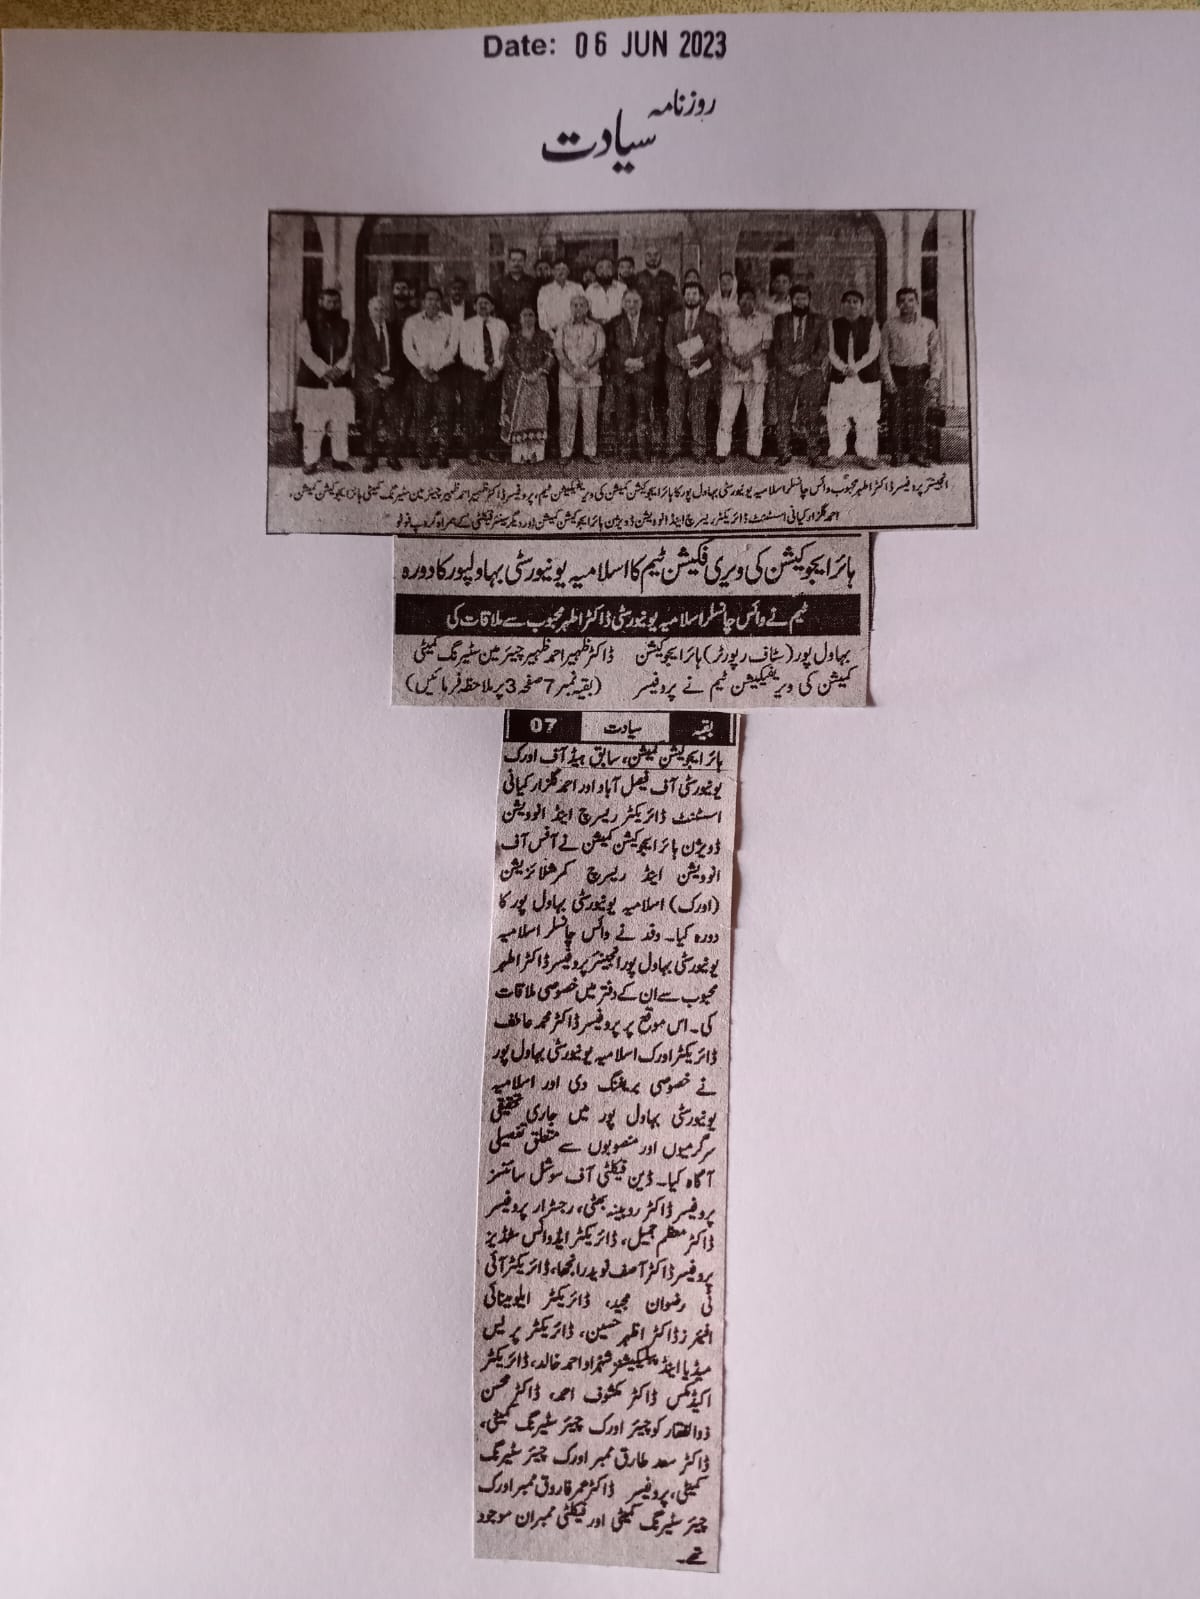 Date: 06 JUN 2023
روزنامہ
سیادت
انجینئر پروفیسر ڈاکٹر اطہر محبوب وائس چانسلر اسلامیہ یونیورسٹی بہاول پور کا ہائر ایجوکیشن کمیشن کی ویریفکیشن ٹیم، پروفیسر ڈاکٹر ظہیر احمد ظہیر چیئرمین سٹیرنگ کمیٹی ہائر ایجوکیشن کمیشن،
احمد گلزار کیانی اسسٹنٹ ڈائریکٹر ریسرچ اینڈ انوویشن ڈویژن ہائر ایجوکیشن کمیشن اور دیگر سینئر فیکلٹی کے ہمراہ گروپ فوٹو
ہائر ایجوکیشن کی ویری فکیشن ٹیم کا اسلامیہ یونیورسٹی بہاولپور کا دورہ
ٹیم نے وائس چانسلر اسلامیہ یونیورسٹی ڈاکٹر اطہر محبوب سے ملاقات کی
بہاول پور (سٹاف رپورٹر) ہائر ایجوکیشن
کمیشن کی ویریفیکیشن ٹیم نے پروفیسر
ڈاکٹر ظہیر احمد ظہیر چیئرمین سٹیرنگ کمیٹی
(بقیہ نمبر 7 صفحہ 3 پر ملاحظہ فرمائیں)
بقیہ سیادت 07
ہائر ایجوکیشن کمیشن، سابق ہیڈ آف اورک
یونیورسٹی آف فیصل آباد اور احمد گلزار کیانی
اسسٹنٹ ڈائریکٹر ریسرچ اینڈ انوویشن
ڈویژن ہائر ایجوکیشن کمیشن نے آفس آف
انوویشن اینڈ ریسرچ کمرشلائزیشن
(اورک) اسلامیہ یونیورسٹی بہاول پور کا
دورہ کیا۔ وفد نے وائس چانسلر اسلامیہ
یونیورسٹی بہاول پور انجینئر پروفیسر ڈاکٹر اطہر
محبوب سے ان کے دفتر میں خصوصی ملاقات
کی۔ اس موقع پر پروفیسر ڈاکٹر محمد عاطف
ڈائریکٹر اورک اسلامیہ یونیورسٹی بہاول پور
نے خصوصی بریفنگ دی اور اسلامیہ
یونیورسٹی بہاول پور میں جاری تحقیقی
سرگرمیوں اور منصوبوں سے متعلق تفصیلی
آگاہ کیا۔ ڈین فیکلٹی آف سوشل سائنسز
پروفیسر ڈاکٹر روبینہ بھٹی، رجسٹرار پروفیسر
ڈاکٹر معظم جمیل، ڈائریکٹر ایڈوانس سٹڈیز
پروفیسر ڈاکٹر آصف نوید رانجھا، ڈائریکٹر آئی
ٹی رضوان مجید، ڈائریکٹر ایلومینائی
افیئرز ڈاکٹر اظہر حسین، ڈائریکٹر پریس
میڈیا اینڈ پبلیکیشنز شہزاد احمد خالد، ڈائریکٹر
اکیڈمکس ڈاکٹر کشوف احمد، ڈاکٹر محسن
ذوالفقار کو چیئر اورک چیئر سٹیرنگ کمیٹی،
ڈاکٹر سعد طارق ممبر اورک چیئر سٹیرنگ
کمیٹی، پروفیسر ڈاکٹر عمر فاروق ممبر اورک
چیئر سٹیرنگ کمیٹی اور فیکلٹی ممبران موجود
تھے۔